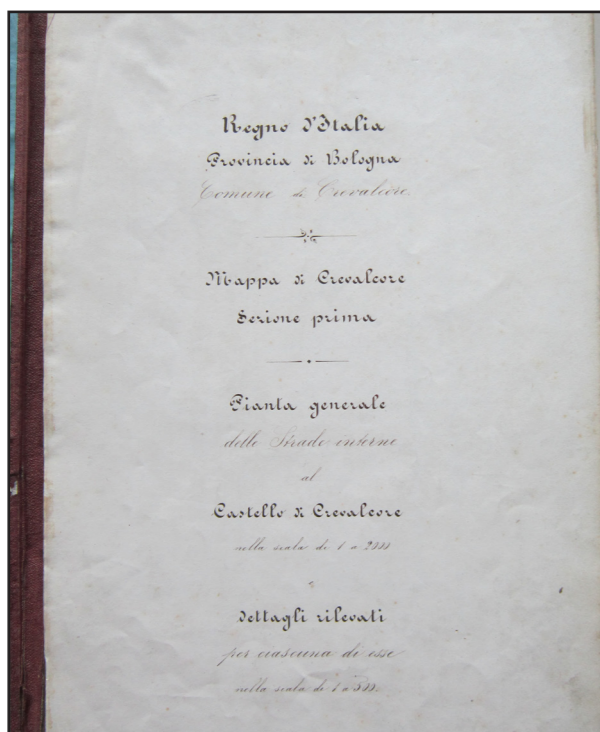 Regno d'Italia
Provincia di Bologna
Comune di Crevalcore.
Mappa di Crevalcore
Sezione prima
Pianta generale
delle Strade interne
al
Castello di Crevalcore
nella scala di 1 a 2000
Dettagli rilevati
per ciascuna di esse
nella scala di 1 a 500.